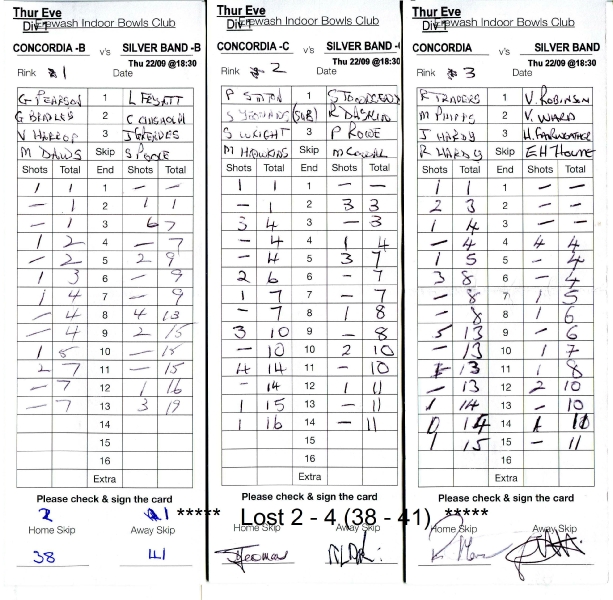 Thur Eve
Div 1
Erewash Indoor Bowls Club
CONCORDIA -B v's SILVER BAND -B
Thu 22/09 @18:30
Rink 1 Date
G PEARSON 1 L FLYATT
G BEADLES 2 C CHISHOLM
V HARROP 3 J GREAVES
M DAWS Skip S POOLE
Shots Total End Shots Total
1 1 1 - -
- 1 2 1 1
- 1 3 6 7
1 2 4 - 7
- 2 5 2 9
1 3 6 - 9
1 4 7 - 9
- 4 8 4 13
- 4 9 2 15
1 5 10 - 15
2 7 11 - 15
- 7 12 1 16
- 7 13 3 19
14
15
16
Extra
Please check & sign the card
2
Home Skip Away Skip
38 41
Thur Eve
Div 1
Erewash Indoor Bowls Club
CONCORDIA -C v's SILVER BAND -
Thu 22/09 @18:30
Rink 2 Date
P SUTTON 1 S TOWNSEND
(SUB) 2 R DASKIN
S WRIGHT 3 P ROWE
M HAWKINS Skip
Shots Total End Shots Total
1 1 1 - -
- 1 2 3 3
3 4 3 - 3
- 4 4 1 4
- 4 5 3 7
2 6 6 - 7
1 7 7 - 7
- 7 8 1 8
3 10 9 - 8
- 10 10 2 10
4 14 11 - 10
- 14 12 1 11
1 15 13 - 11
1 16 14 - 11
15
16
Extra
Please check & sign the card
Home Skip Away Skip
Thur Eve
Div 1
Erewash Indoor Bowls Club
CONCORDIA v's SILVER BAND
Thu 22/09 @18:30
Rink 3 Date
R TRADERS 1 V. ROBINSON
M PHIPPS 2 V. WARD
J HARDY 3 H. FAIRWEATHER
R HARDY Skip E H Towne
Shots Total End Shots Total
1 1 1 - -
2 3 2 - -
1 4 3 - -
- 4 4 4 4
1 5 5 - 4
3 8 6 - 4
- 8 7 1 5
- 8 8 1 6
5 13 9 - 6
- 13 10 1 7
- 13 11 1 8
- 13 12 2 10
1 14 13 - 10
0 14 14 1 11
1 15 15 - 11
16
Extra
Please check & sign the card
Home Skip Away Skip
***** Lost 2 - 4 (38 - 41) *****